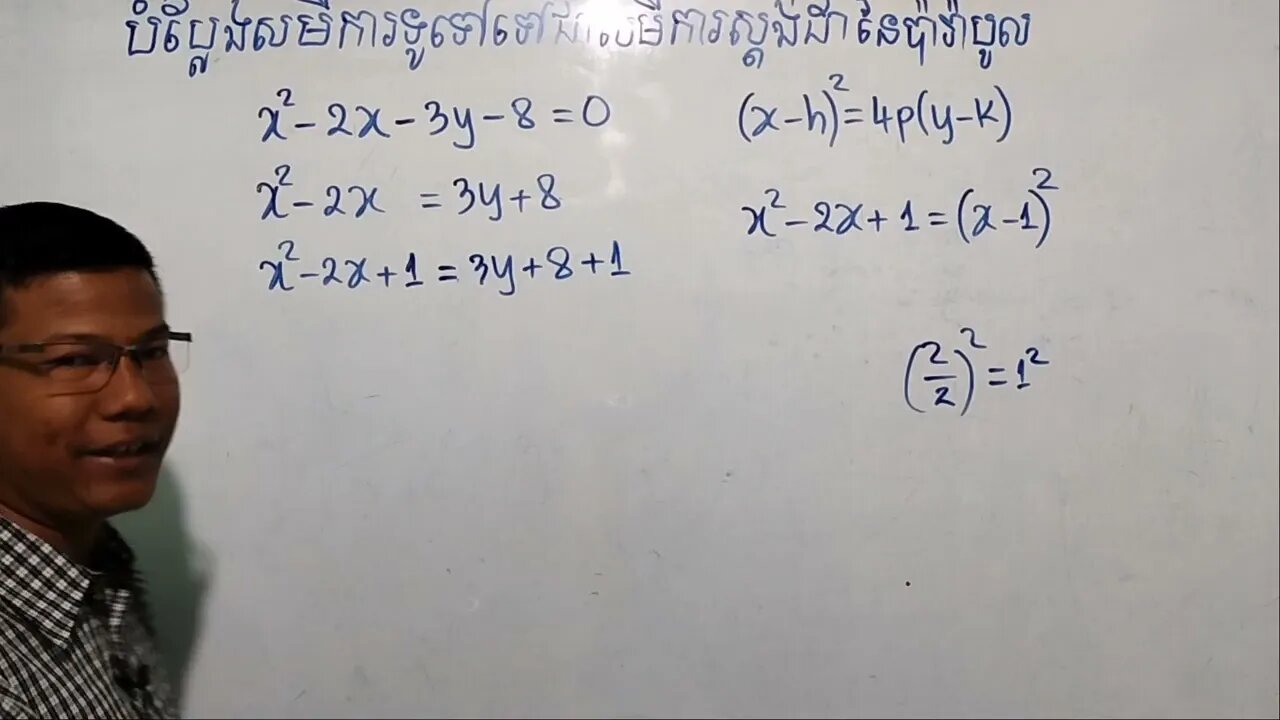 បំប្លែងសមីការទូទៅទៅជាសមីការស្តង់ដានៃប៉ារ៉ាបូល
x² - 2x - 3y - 8 = 0
x² - 2x = 3y + 8
x² - 2x + 1 = 3y + 8 + 1
(x - h)² = 4p(y - k)
x² - 2x + 1 = (x - 1)²
(2/2)² = 1²